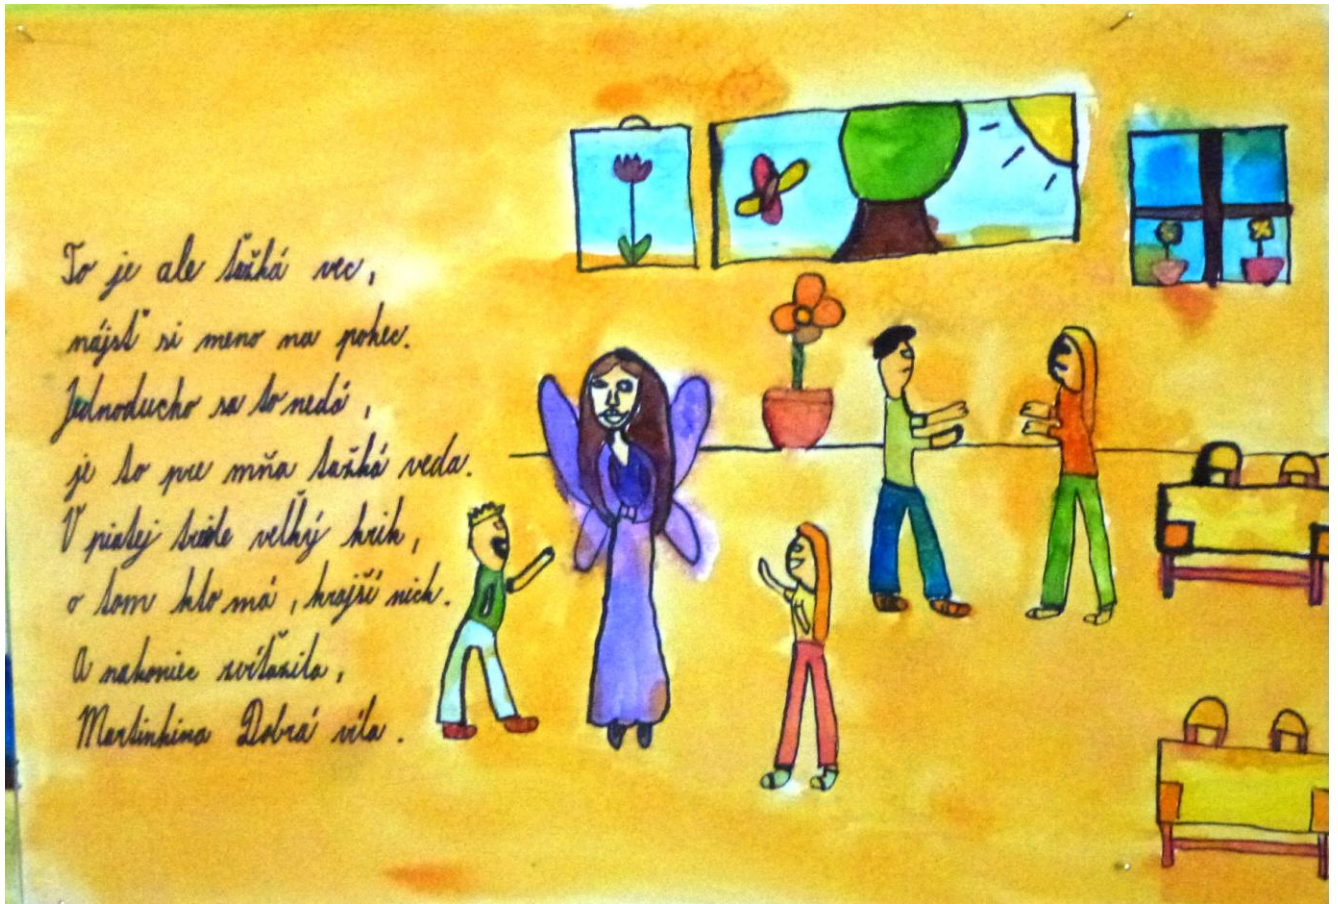 To je ale ťažká vec,
nájsť si meno na pokec.
Jednoducho sa to nedá,
je to pre mňa ťažká veda.
V piatej triede veľký krik,
o tom kto má, krajší nick.
A nakoniec zvíťazila,
Martinkina Dobrá víla.